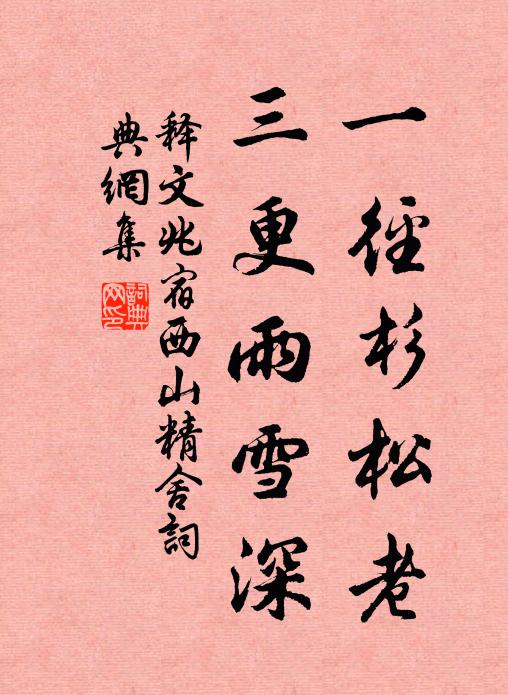 一徑杉松老
三更雨雪深
释文兆宿西山精舍詞
典網集
詞典网印